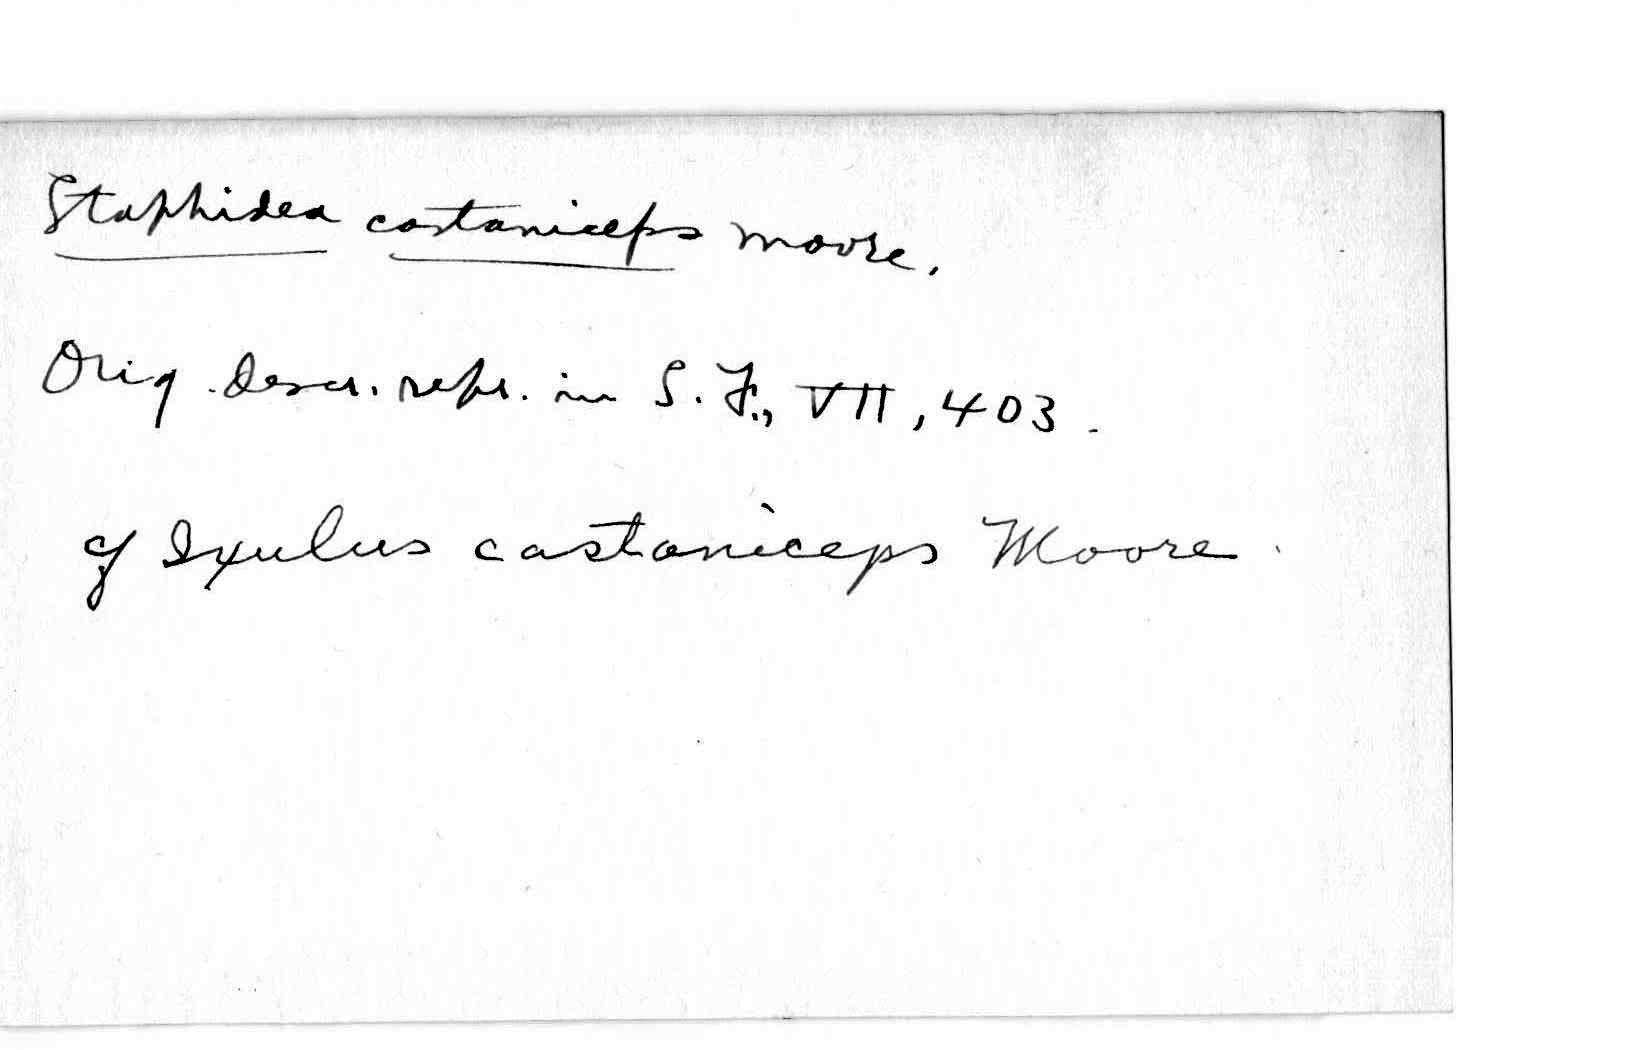 Staphidea castaniceps Moore.
Orig. descr. repr. in S. F., VII, 403.
cf Ixulus castaniceps Moore.